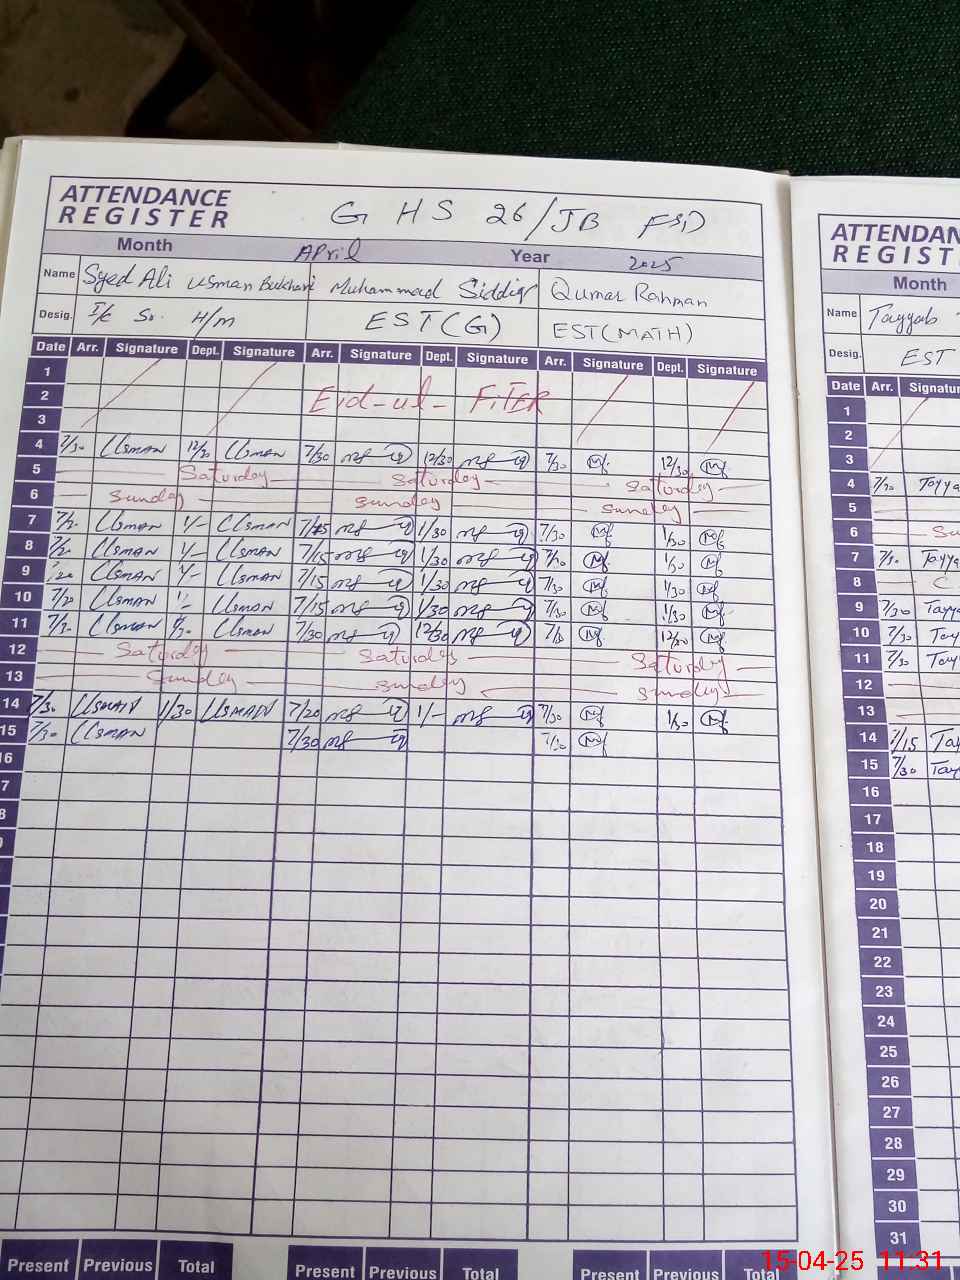 ATTENDANCE
REGISTER
G HS 26/JB FSD
Month April Year 2025
Name Syed Ali Usman Bukhari Muhammad Siddiq Qumar Rahman
Desig. I/C Sr. H/M EST(G) EST(MATH)
Date Arr. Signature Dept. Signature Arr. Signature Dept. Signature Arr. Signature Dept. Signature
1
2 Eid-ul-FITER
3
4 7/30 Usman 12/30 Usman 7/30 12/30 7/30 12/30
5 Saturday Saturday Saturday
6 Sunday Sunday Sunday
7 Usman 1/- Usman 1/30 7/30 1/30
8 Usman 1/- Usman 7/15 1/30 1/30
9 Usman 1/- Usman 7/15 1/30 7/30 1/30
10 7/20 Usman Usman 7/15 1/30 7/30 1/30
11 Usman Usman 7/30 12/30 12/30
12 Saturday Saturday Saturday
13 Sunday Sunday Sunday
14 7/30 USMAN 1/30 USMAN 7/20 1/- 7/30 1/30
15 7/30 Usman 7/30 7/30
16
7
8
Present Previous Total Present Previous Total Present Previous Total
ATTENDAN
REGIST
Month
Name Tayyab
Desig. EST
Date Arr. Signatur
1
2
3
4 7/30 Tayya
5
6 Su
7 7/30 Tayya
8
9 7/30 Tayya
10 7/30 Tay
11 7/30 Tay
12
13
14 7/15 Tay
15 7/30 Tay
16
17
18
19
20
21
22
23
24
25
26
27
28
29
30
31
15-04-25 11:31